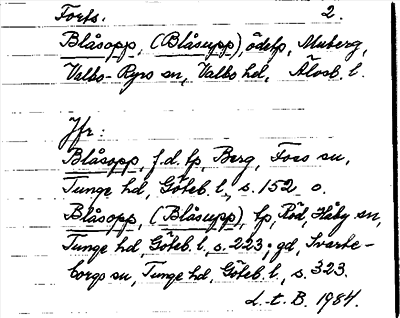 Forts. 2.
Blåsopp, (Blåsupp), ödelp, Muberg,
Valbo-Ryrs sn, Valbo hd, Älvsb. l.
Jfr:
Blåsopp, f.d. lp, Berg, Foss sn,
Tunge hd, Göteb. l., s. 152 o.
Blåsopp, (Blåsupp), lp, Röd, Håby sn,
Tunge hd, Göteb. l, s. 223; gd, Svarte-
borgs sn, Tunge hd, Göteb. l., s. 323.
d. t. B. 1984.